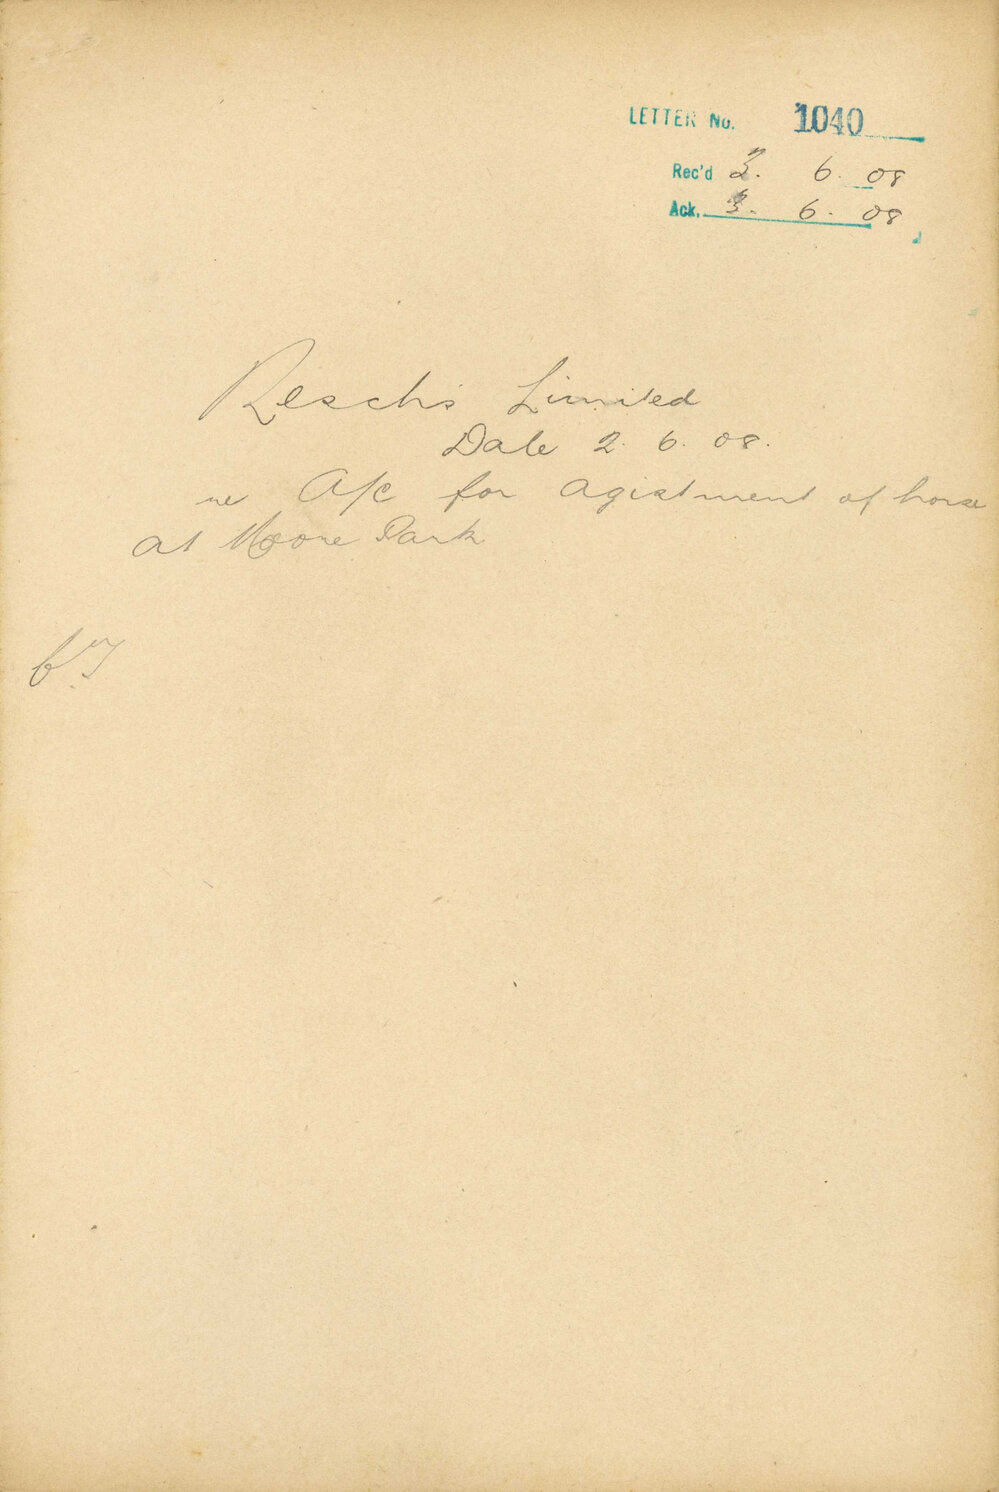 LETTER No. 1040
Rec'd 3. 6. 08
Ack. 3. 6. 08
Resch's Limited
Date 2. 6. 08.
re A/c for agistment of horse
at Moore Park